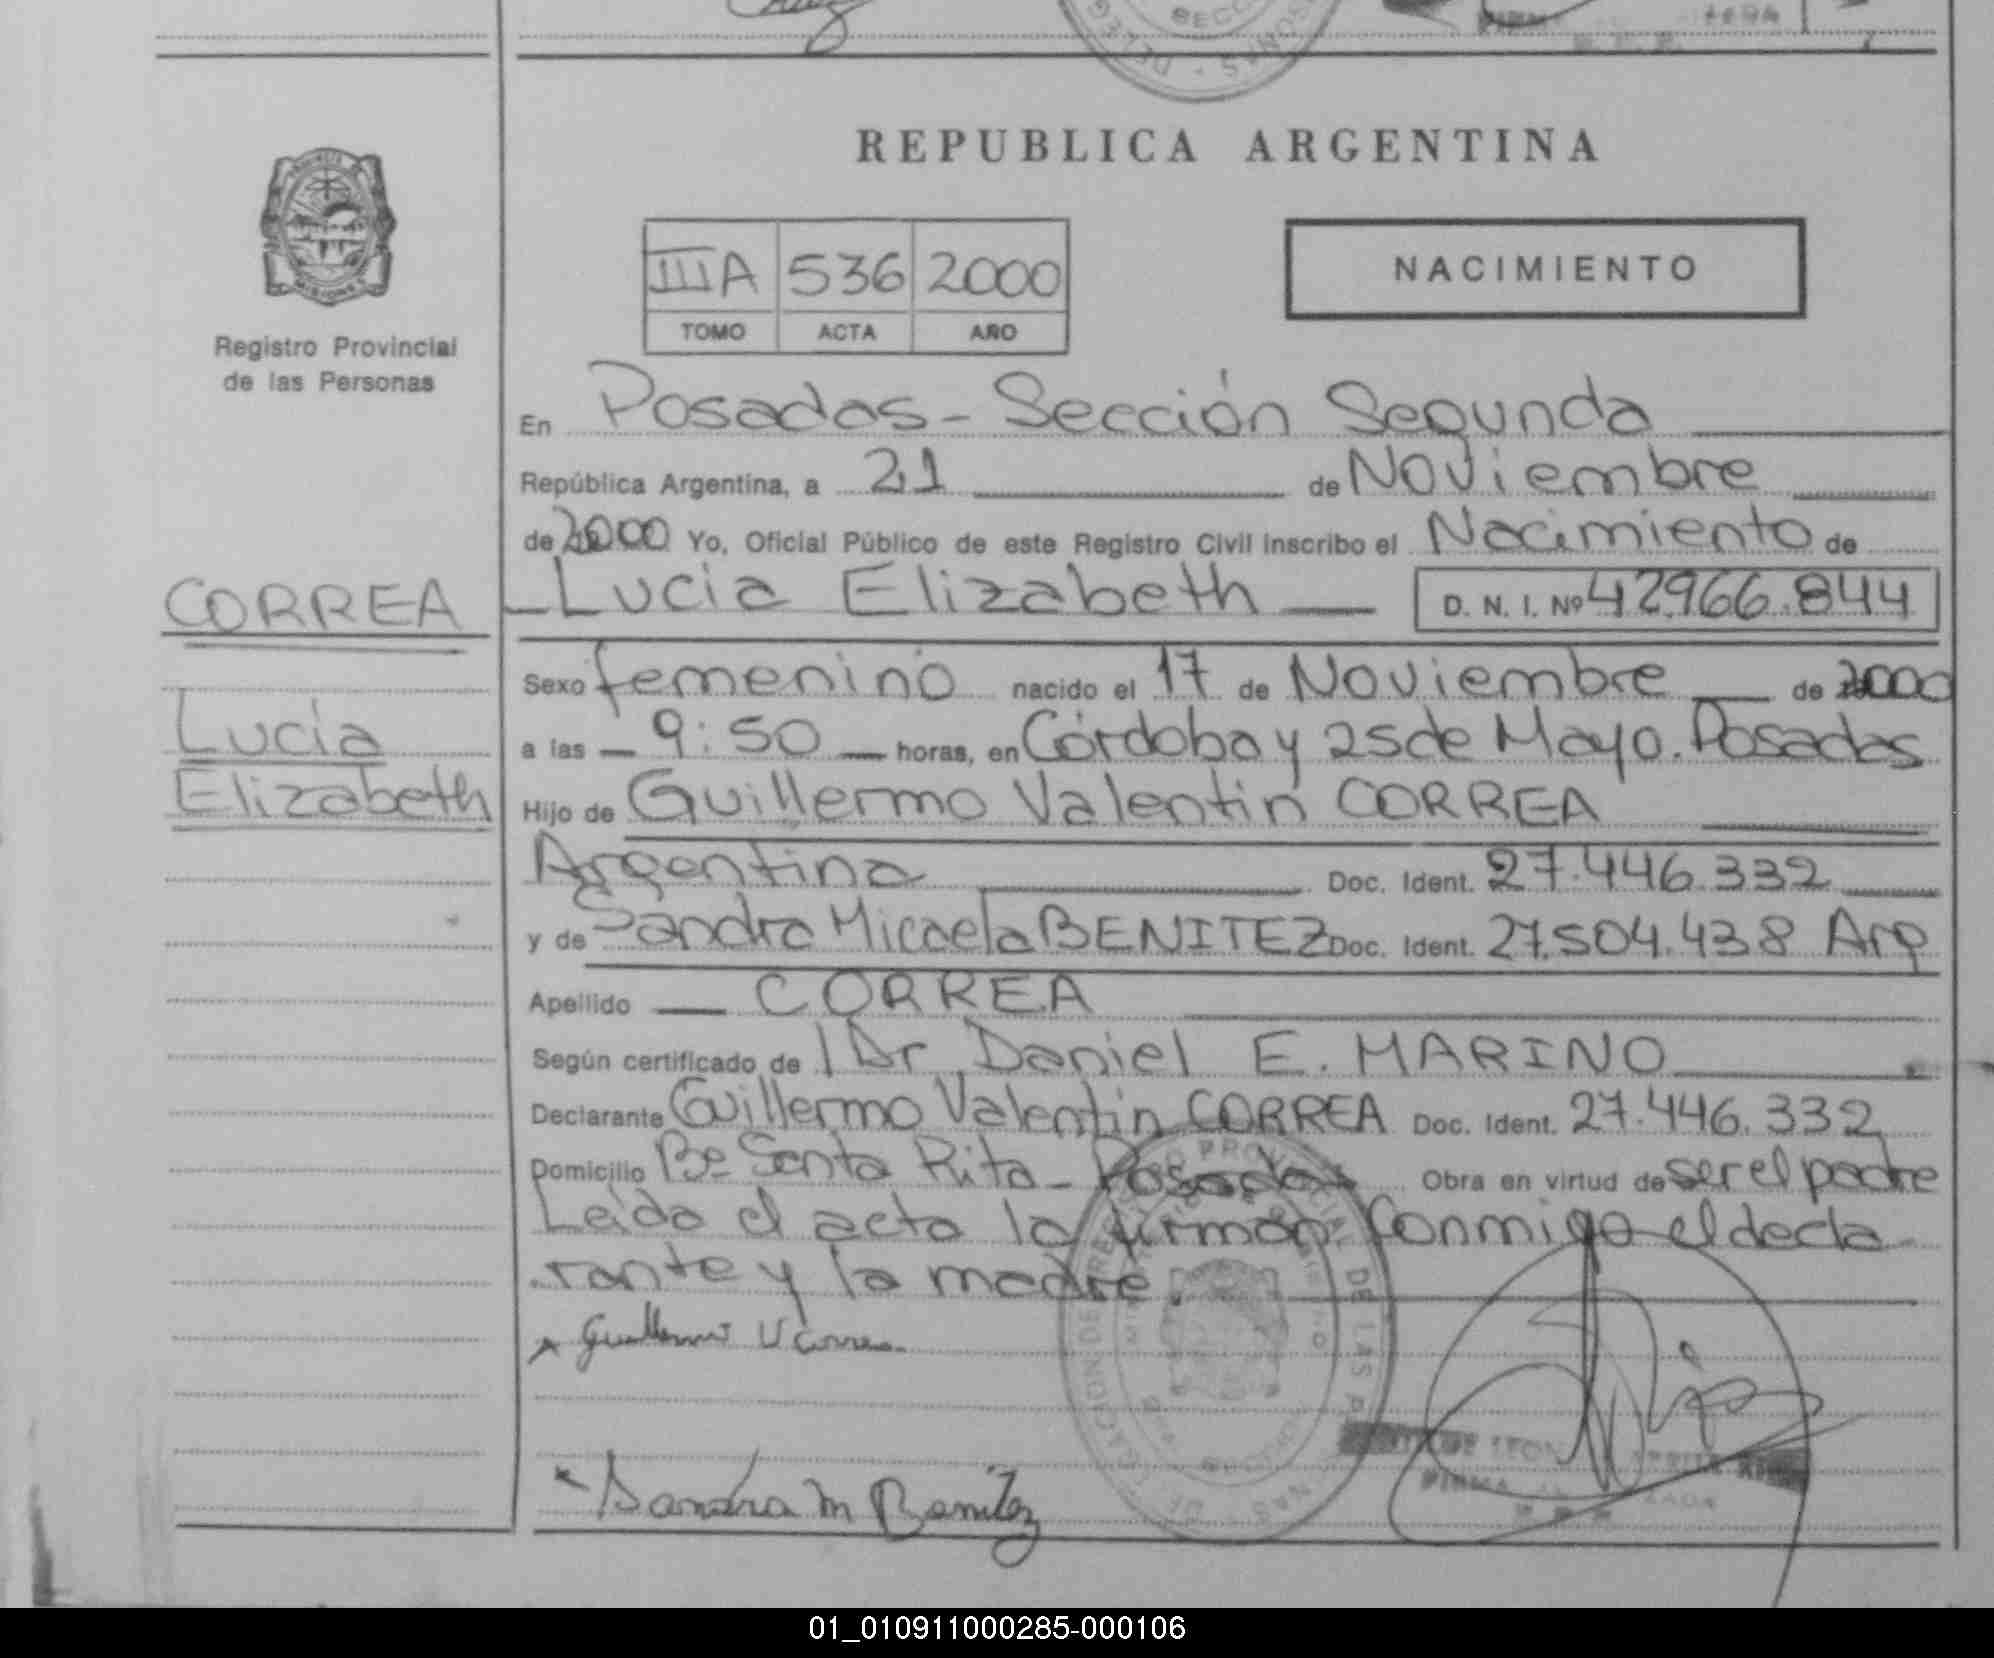 REPUBLICA ARGENTINA
MISIONES
Registro Provincial
de las Personas
IIIA 536 2000
TOMO ACTA AÑO
NACIMIENTO
En Posadas - Sección Segunda
República Argentina, a 21 de Noviembre
de 2000 Yo, Oficial Público de este Registro Civil inscribo el Nacimiento de
Lucia Elizabeth D. N. I. Nº 42.966.844
CORREA
Lucía
Elizabeth
Sexo femenino nacido el 17 de Noviembre de 2000
a las 9:50 horas, en Córdoba y 25 de Mayo. Posadas
Hijo de Guillermo Valentin CORREA
Argentina Doc. Ident. 27.446.332
y de Sandra Micaela BENITEZ Doc. Ident. 27.504.438 Arg
Apellido CORREA
Según certificado de Dr Daniel E. MARINO
Declarante Guillermo Valentin CORREA Doc. Ident. 27.446.332
Domicilio Bº Santa Rita - Posadas Obra en virtud de ser el padre
Leída el acta la firman conmigo el decla
rante y la madre.
Guillermo V Correa
Sandra M Benitez
01_010911000285-000106